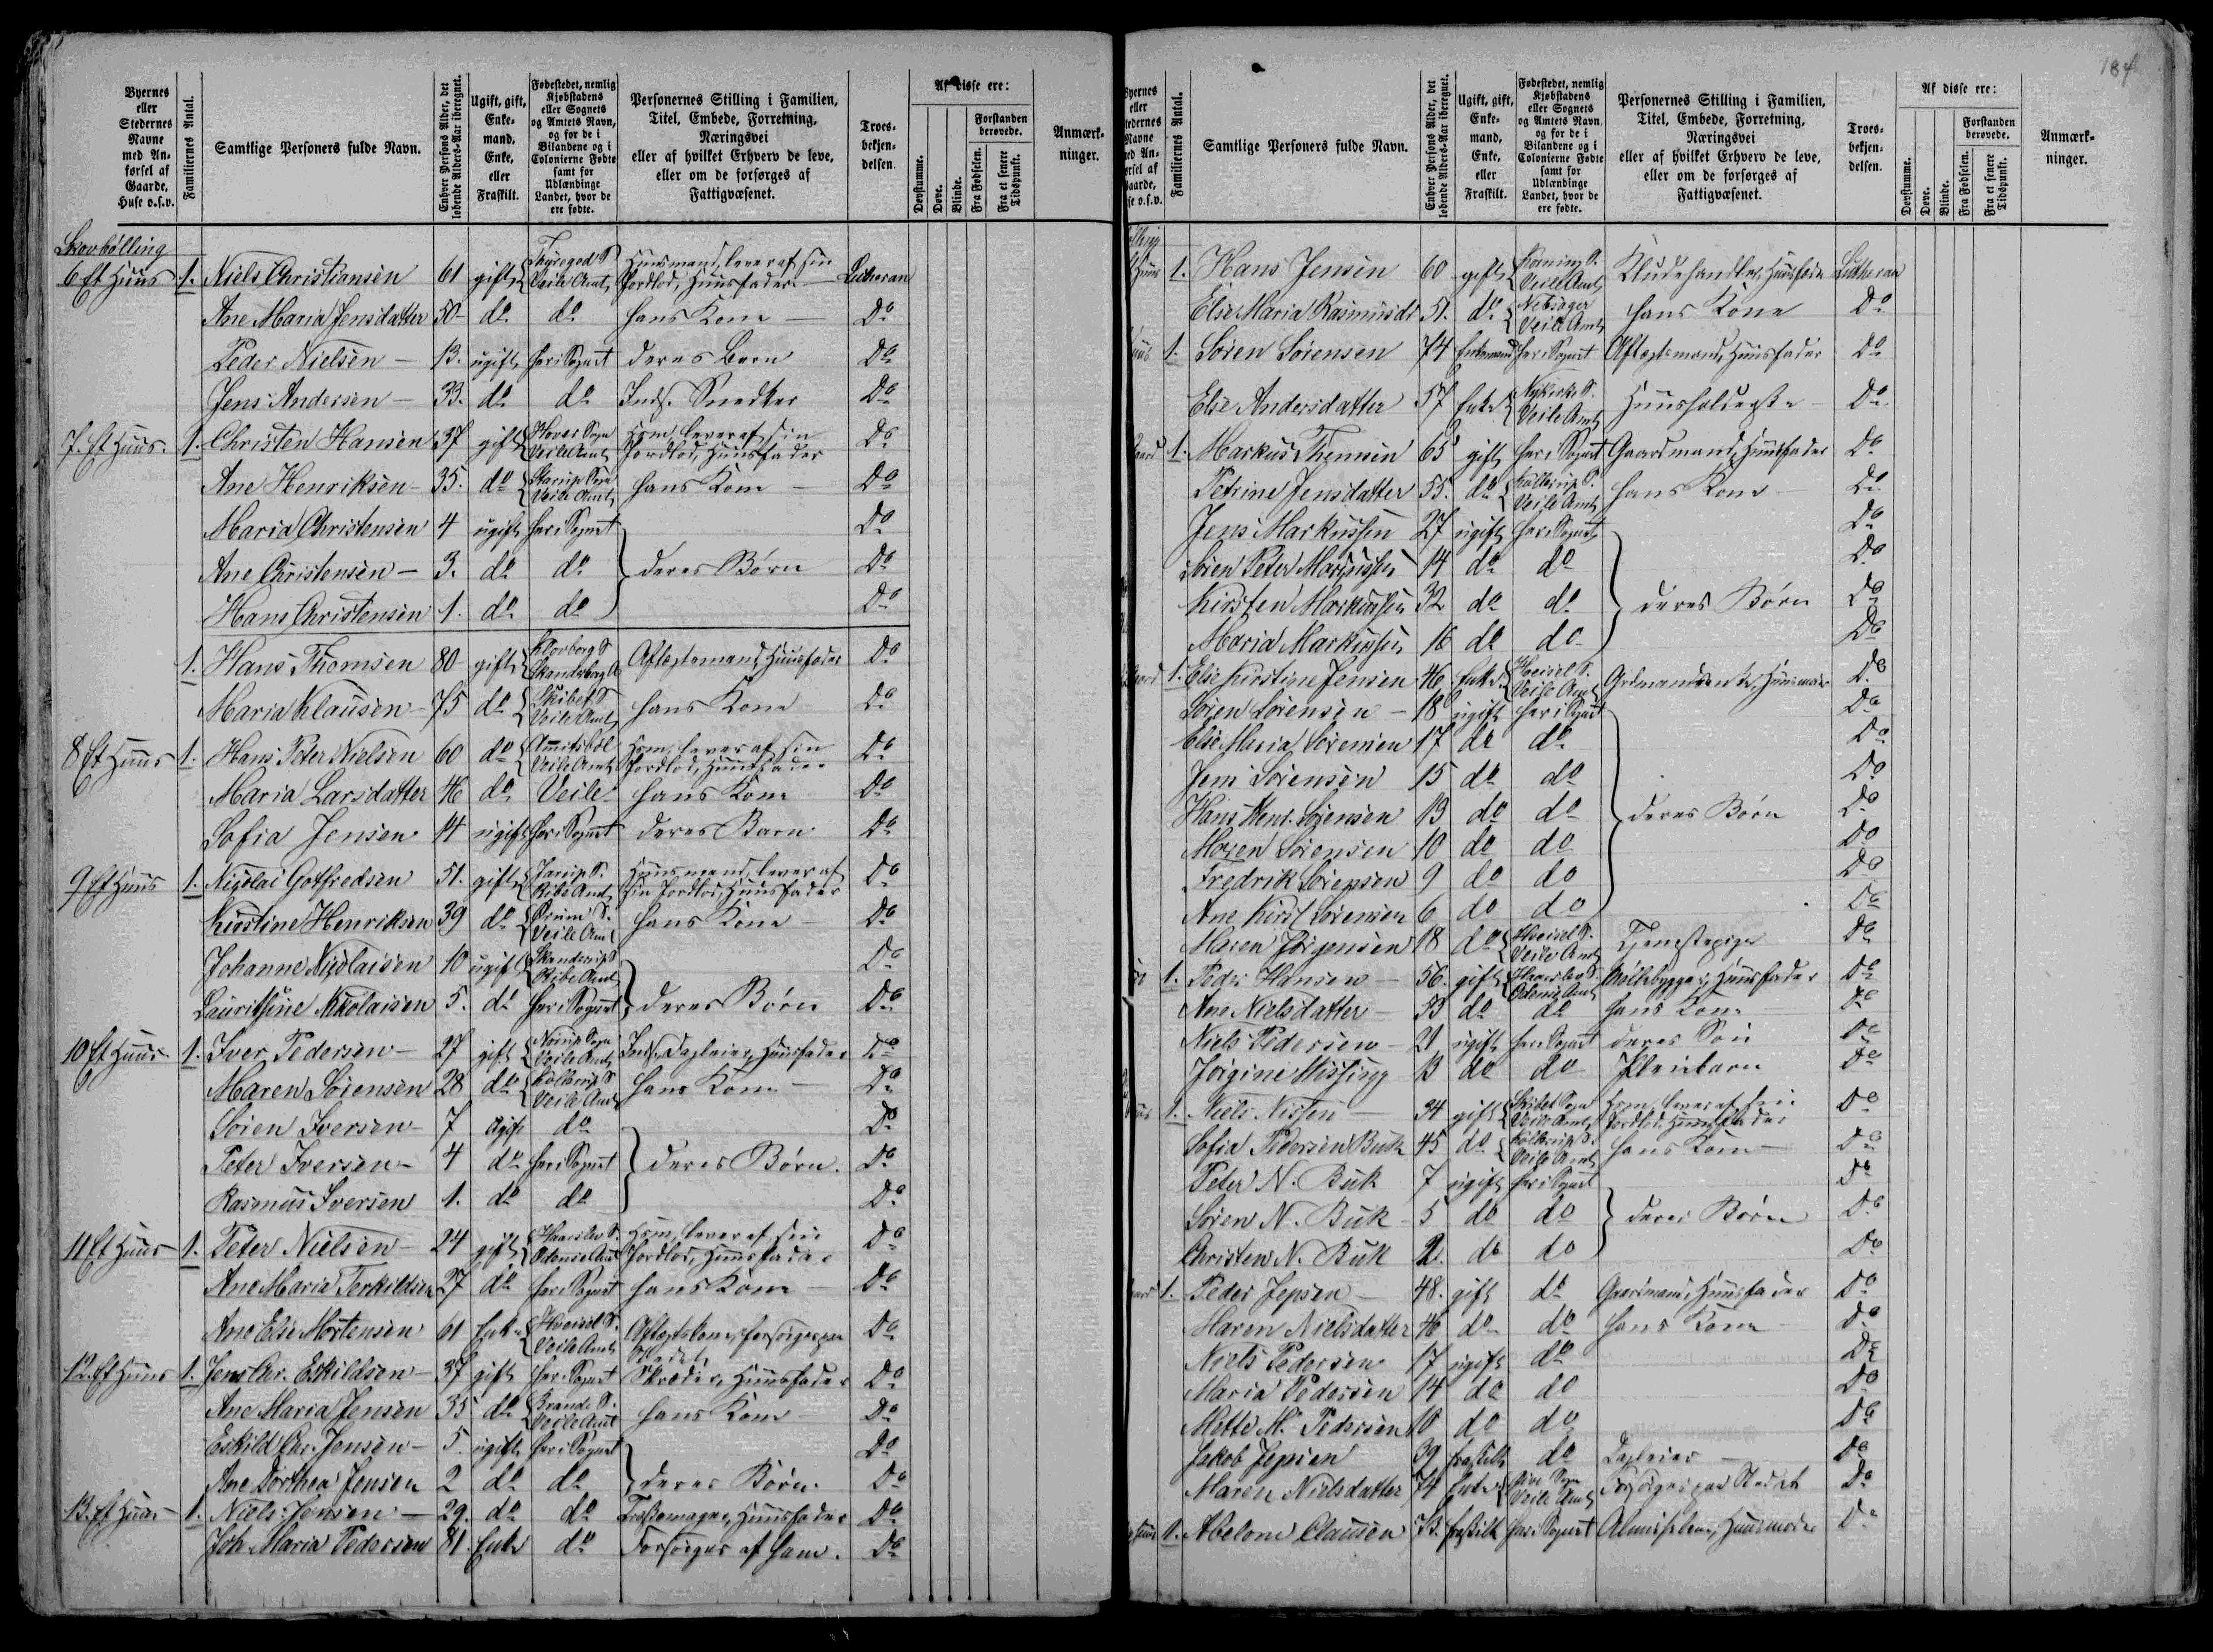 184
Byernes eller Stedernes Navne med Anførsel af Gaarde, Huse o.s.v. | Familiernes Antal. | Samtlige Personers fulde Navn. | Enhver Persons Alder, det løbende Alders-Aar iberegnet. | Ugift, gift, Enkemand, Enke, eller Fraskilt. | Fødestedet, nemlig Kjøbstadens eller Sognets og Amtets Navn, og for de i Bilandene og i Colonierne Fødte samt for Udlændinge Landet, hvor de ere fødte. | Personernes Stilling i Familien, Titel, Embede, Forretning, Næringsvei eller af hvilket Erhverv de leve, eller om de forsørges af Fattigvæsenet. | Troesbekjendelsen. | Af disse ere: Døvstumme. Døve. Blinde. Forstanden berøvede. Fra Fødselen. Fra et senere Tidspunkt. | Anmærkninger.
Skovbølling
6 Et Huus 1. Niels Christiansen 61 gift Thyregod S. Veile Amt, Huusmand, lever af sin Jordlod, Huusfader. Lutheran
Ane Maria Jensdatter 50 do do hans Kone Do
Peder Nielsen 13. ugift her i Sognet deres Barn Do
Jens Andersen 33. do do Inds. Snedker Do
7. Et Huus. 1. Christen Hansen 37 gift Hover Sogn Veile Amt, Hsm, lever af sin Jordlod, Huusfader Do
Ane Henriksen 35. do Starup Sogn Veile Amt, hans Kone Do
Maria Christensen 4 ugift her i Sognet Do
Ane Christensen 3. do do deres Børn Do
Hans Christensen 1. do do Do
1. Hans Thomsen 80 gift Klovborg S Skanderborg A Aftægtsmand, Huusfader Do
Maria Klausen 75 do Skibet S Veile Amt, hans Kone Do
8 Et Huus 1. Hans Peter Nielsen 60 do Veile Amt, Hsm, lever af sin Jordlod, Huusfader Do
Maria Larsdatter 46 do Veile hans Kone Do
Sofia Jensen 14 ugift her i Sognet deres Barn Do
9 Et Huus 1. Nicolai Gotfredsen 51. gift Ribe Amt, Huusmand, lever af sin Jordlod, Huusfader Do
Kirstine Henriksen 39 do Ørum S. Veile Amt hans Kone Do
Johanne Nicolaisen 10 ugift Skanderup S Ribe Amt Do
Laurithine Nikolaisen 5. do her i Sognet deres Børn Do
10 Et Huus 1. Iver Pedersen 27 gift Nørup Sogn Veile Amt, Inds, Dagleier, Huusfader Do
Maren Sørensen 28 do Kolkrup S Veile Amt hans Kone Do
Søren Iversen 7 ugift do Do
Peter Iversen 4 do her i Sognet deres Børn. Do
Rasmus Iversen 1. do do Do
11 Et Huus 1. Peter Nielsen 24 gift Haarslev S. Odense Amt Hsm, lever af sin Jordlod, Huusfader Do
Ane Maria Terkildsen 27 do her i Sognet hans Kone Do
Ane Else Mortensen 61 Enke Hveisel S. Veile Amt, Aftægtskone, forsørges paa Stedet Do
12. Et Huus 1. Jens Chr. Eskildsen 37 gift her i Sognet Skræder, Huusfader Do
Ane Maria Jensen 35 do Brande S. Veile Amt hans Kone Do
Eskild Chr. Jensen 5. ugift her i Sognet Do
Ane Dorthea Jensen 2 do do deres Børn. Do
13. Et Huus 1. Niels Jensen 29. do do Træskomager, Huusfader Do
Joh. Maria Pedersen 81. Enke do Forsørges af ham. Do
Byernes eller Stedernes Navne med Anførsel af Gaarde, Huse o.s.v. | Familiernes Antal. | Samtlige Personers fulde Navn. | Enhver Persons Alder, det løbende Alders-Aar iberegnet. | Ugift, gift, Enkemand, Enke, eller Fraskilt. | Fødestedet, nemlig Kjøbstadens eller Sognets og Amtets Navn, og for de i Bilandene og i Colonierne Fødte samt for Udlændinge Landet, hvor de ere fødte. | Personernes Stilling i Familien, Titel, Embede, Forretning, Næringsvei eller af hvilket Erhverv de leve, eller om de forsørges af Fattigvæsenet. | Troesbekjendelsen. | Af disse ere: Døvstumme. Døve. Blinde. Forstanden berøvede. Fra Fødselen. Fra et senere Tidspunkt. | Anmærkninger.
1. Hans Jensen 60 gift Korning S. Veile Amt, Kludehandler, Huusfader Lutheran
Else Maria Rasmusdr 51. do Nebsager Veile Amt hans Kone Do
1. Søren Sørensen 74 Enkemand her i Sognet Aftægtsmand, Huusfader Do
Else Andersdatter 57 Enke Nykirke S. Veile Amt Huusholderske Do
1. Markus Thomsen 65 gift her i Sognet Gaardmand, Huusfader Do
Petrine Jensdatter 55. do Kolkrup S. Veile Amt hans Kone Do
Jens Markussen 27 ugift her i Sognet Do
Søren Peter Markussen 14 do do Do
Kirsten Markussen 32 do do deres Børn Do
Maria Markussen 16 do do Do
1. Else Kirstine Jensen 46. Enke Hveisel S. Veile Amt Grdmandsenke, Huusmoder Do
Søren Sørensen 18 ugift her i Sognet Do
Else Maria Sørensen 17 do do Do
Jens Sørensen 15 do do Do
Hans Henr. Sørensen 13 do do deres Børn Do
Maren Sørensen 10 do do Do
Fredrik Sørensen 9 do do Do
Ane Kirst. Sørensen 6 do do Do
Maren Jørgensen 18 do Hveisel S. Veile Amt Tjenestepige Do
1. Peder Hansen 56. gift Haarslev S. Odense Amt Møllebygger, Huusfader Do
Ane Nielsdatter 53 do do hans Kone Do
Niels Pedersen 21 ugift her i Sognet deres Søn Do
Jørgine Missing 13 do do Pleiebarn Do
1. Niels Nissen 34 gift Skibet Sogn Veile Amt, Hsm, lever af sin Jordlod, Huusfader Do
Sofia Pedersen Buk 45 do Kolkrup S. Veile Amt hans Kone Do
Peter N. Buk 7 ugift her i Sognet Do
Søren N. Buk 5 do do deres Børn Do
Christen N. Buk 2. do do Do
1. Peder Jepsen 48. gift do Gaardmand, Huusfader Do
Maren Nielsdatter 46 do do hans Kone Do
Niels Pedersen 17 ugift do Do
Maria Pedersen 14 do do Do
Mette M. Pedersen 10 do do Do
Jakob Jepsen 39 fraskilt do Dagleier Do
Maren Nielsdatter 74 Enke Give Sogn Veile Amt Forsørges paa Stedet Do
1. Abelone Clausen 73. fraskilt her i Sognet Almisselem, Huusmoder Do